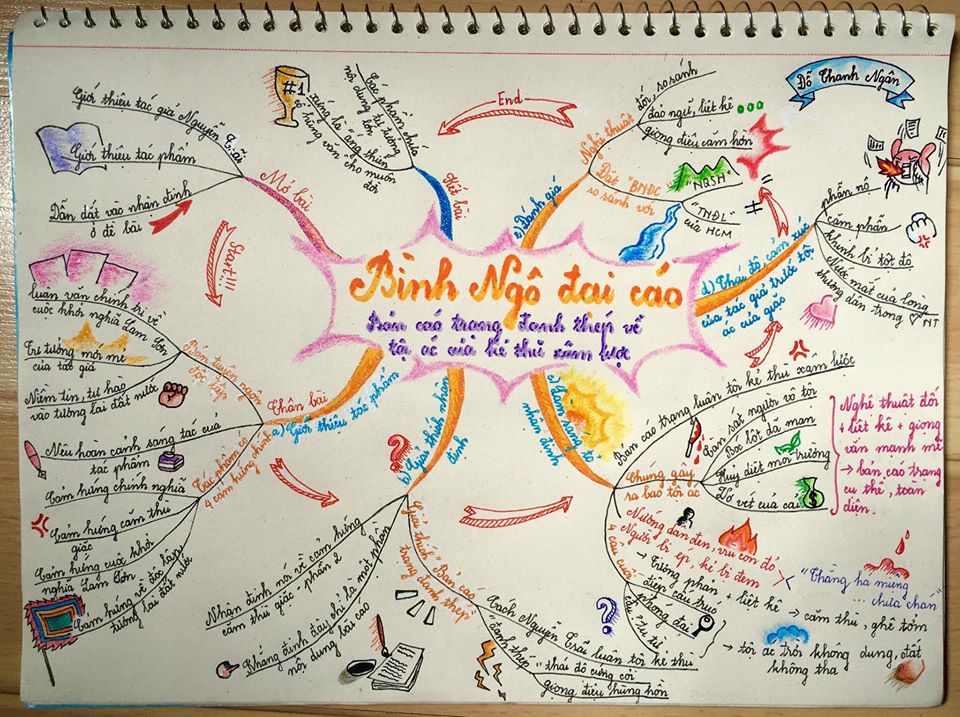 Bình Ngô đại cáo
bản cáo trạng đanh thép về
tội ác của kẻ thù xâm lược
Đỗ Thanh Ngân
Start!!!
Mở bài
Giới thiệu tác giả Nguyễn Trãi
Giới thiệu tác phẩm
Dẫn dắt vào nhận định
ở đề bài
Thân bài
a) Giới thiệu tác phẩm
Bản tuyên ngôn
độc lập
luận văn chính trị về
cuộc khởi nghĩa Lam Sơn
Tư tưởng mới mẻ
của tác giả
Niềm tin, tự hào
vào tương lai đất nước
Nêu hoàn cảnh sáng tác của
tác phẩm
Tác phẩm có
4 cảm hứng chính
Cảm hứng chính nghĩa
Cảm hứng căm thù
giặc
Cảm hứng cuộc khởi
nghĩa Lam Sơn
Cảm hứng về độc lập
tương lai đất nước
b) Giải thích nhận
định
Nhận định nói về cảm hứng
căm thù giặc - phần 2
Khẳng định đây chỉ là một phần
nội dung bài cáo
Giải thích "Bản cáo
trạng đanh thép"
Cách Nguyễn Trãi luận tội kẻ thù
"đanh thép" thái độ cứng cỏi
giọng điệu hùng hồn
c) Làm sáng tỏ
nhận định
Bản cáo trạng luận tội kẻ thù xâm lược
Chúng gây
ra bao tội ác
Tàn sát người vô tội
Bóc lột dã man
Huỷ diệt môi trường
Vơ vét của cải
Nghệ thuật đối
+ liệt kê + giọng
văn mạnh mẽ
→ bản cáo trạng
cụ thể, toàn
diện.
4 câu cuối
Nướng dân đen, vùi con đỏ
Người bị ép, kẻ bị đem
→ Tương phản + liệt kê
"Thằng há miệng
... chưa chán"
→ căm thù, ghê tởm
điệp cấu trúc
phóng đại
câu hỏi tu từ
→ tội ác trời không dung, đất
không tha
d) Thái độ cảm xúc
của tác giả trước tội
ác của giặc
phẫn nộ
căm phẫn
khinh bỉ tột độ
Nước mắt của lòng
thương dân trong NT
e) Đánh giá
Nghệ thuật
đối, so sánh
đảo ngữ, liệt kê
giọng điệu căm hờn
Đặt "BNĐC"
so sánh với
"NQSH"
=
"TNĐL"
của HCM
≠
End
Kết bài
tác phẩm chứa
các tư tưởng
nội dung lớn
xứng là áng thiên
cổ hùng văn
cho muôn
đời
#1